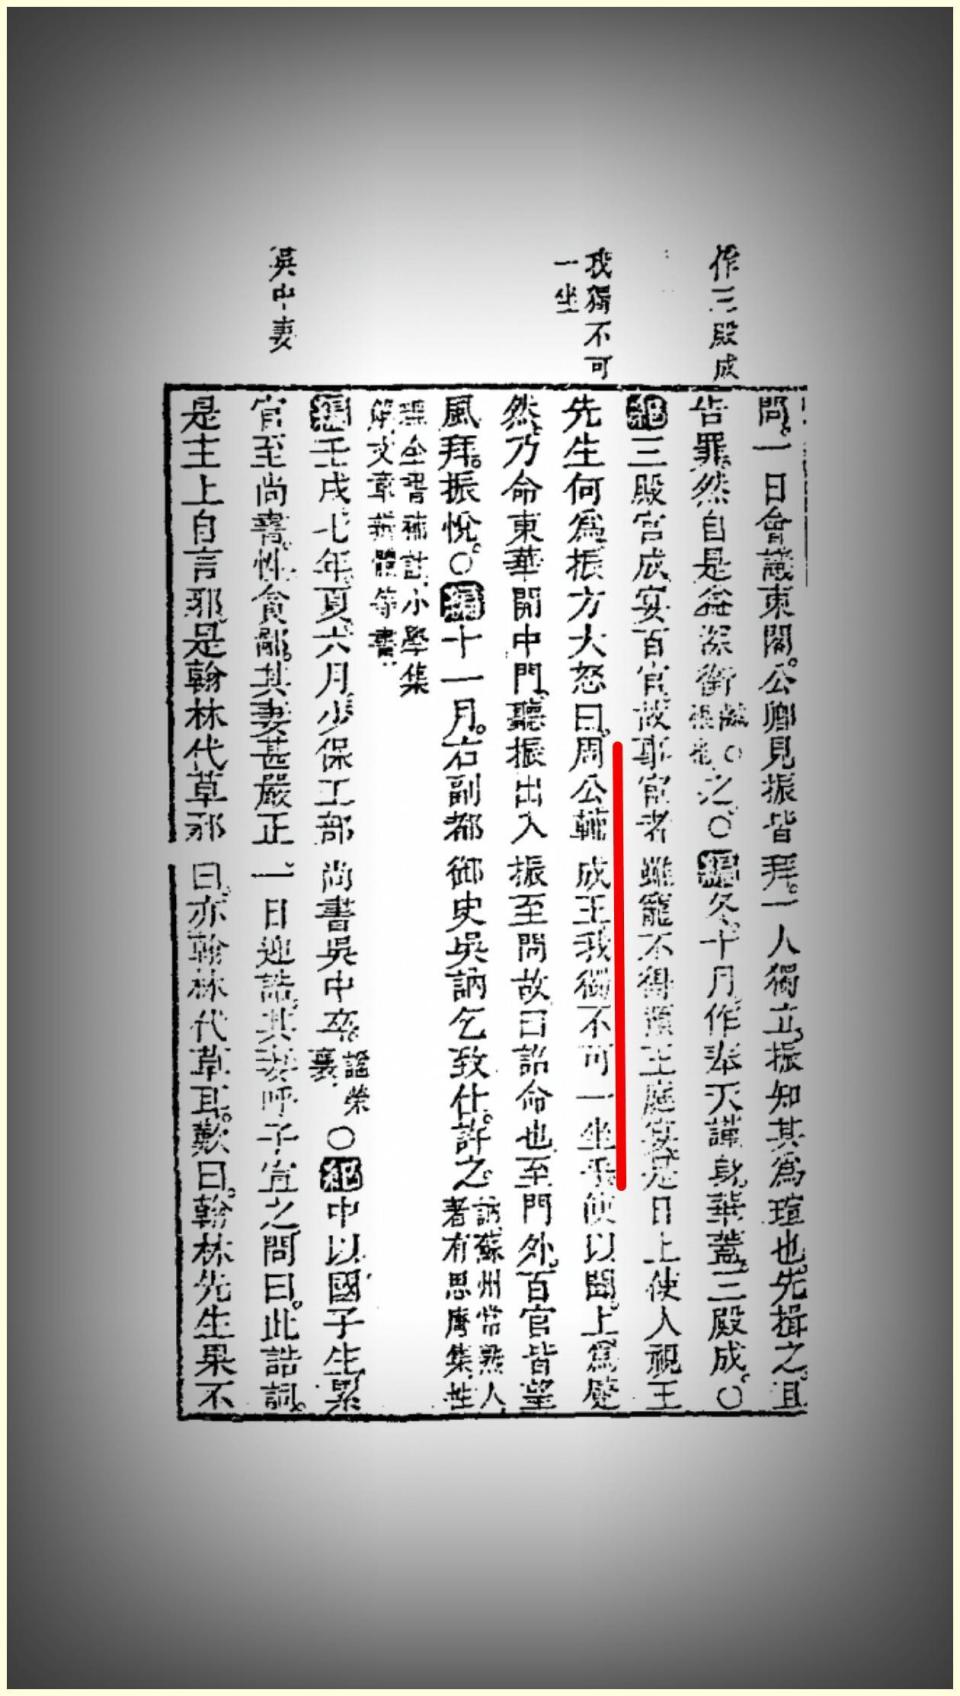 作三殿成
我獨不可
一坐
吳中妻
問。一日會議東閣。公卿見振皆拜。一人獨立。振知其爲瑄也。先揖之。且
告罪。然自是益深銜之。○編冬。十月。作奉天謹身華蓋三殿成。○
紀三殿宮成。宴百官。故事宦者雖寵不得預王庭宴。是日上使人視王
先生何爲。振方大怒曰。周公輔成王。我獨不可一坐乎。使以聞。上爲蹙
然。乃命東華開中門。聽振出入。振至問故。曰詔命也。至門外。百官皆望
風拜。振悅。○編十一月。右副都御史吳訥乞致仕。許之。訥蘇州常熟人
著有思庵集性
理全書補註小學集
解文章辨體等書
編壬戌七年。夏六月。少保工部尚書吳中卒。謚榮
襄○紀中以國子生累
官至尚書。性貪鄙。其妻甚嚴正。一日迎誥。其妻呼子宣之。問曰。此誥詞。
是主上自言邪。是翰林代草邪。曰。亦翰林代草耳。歎曰。翰林先生果不